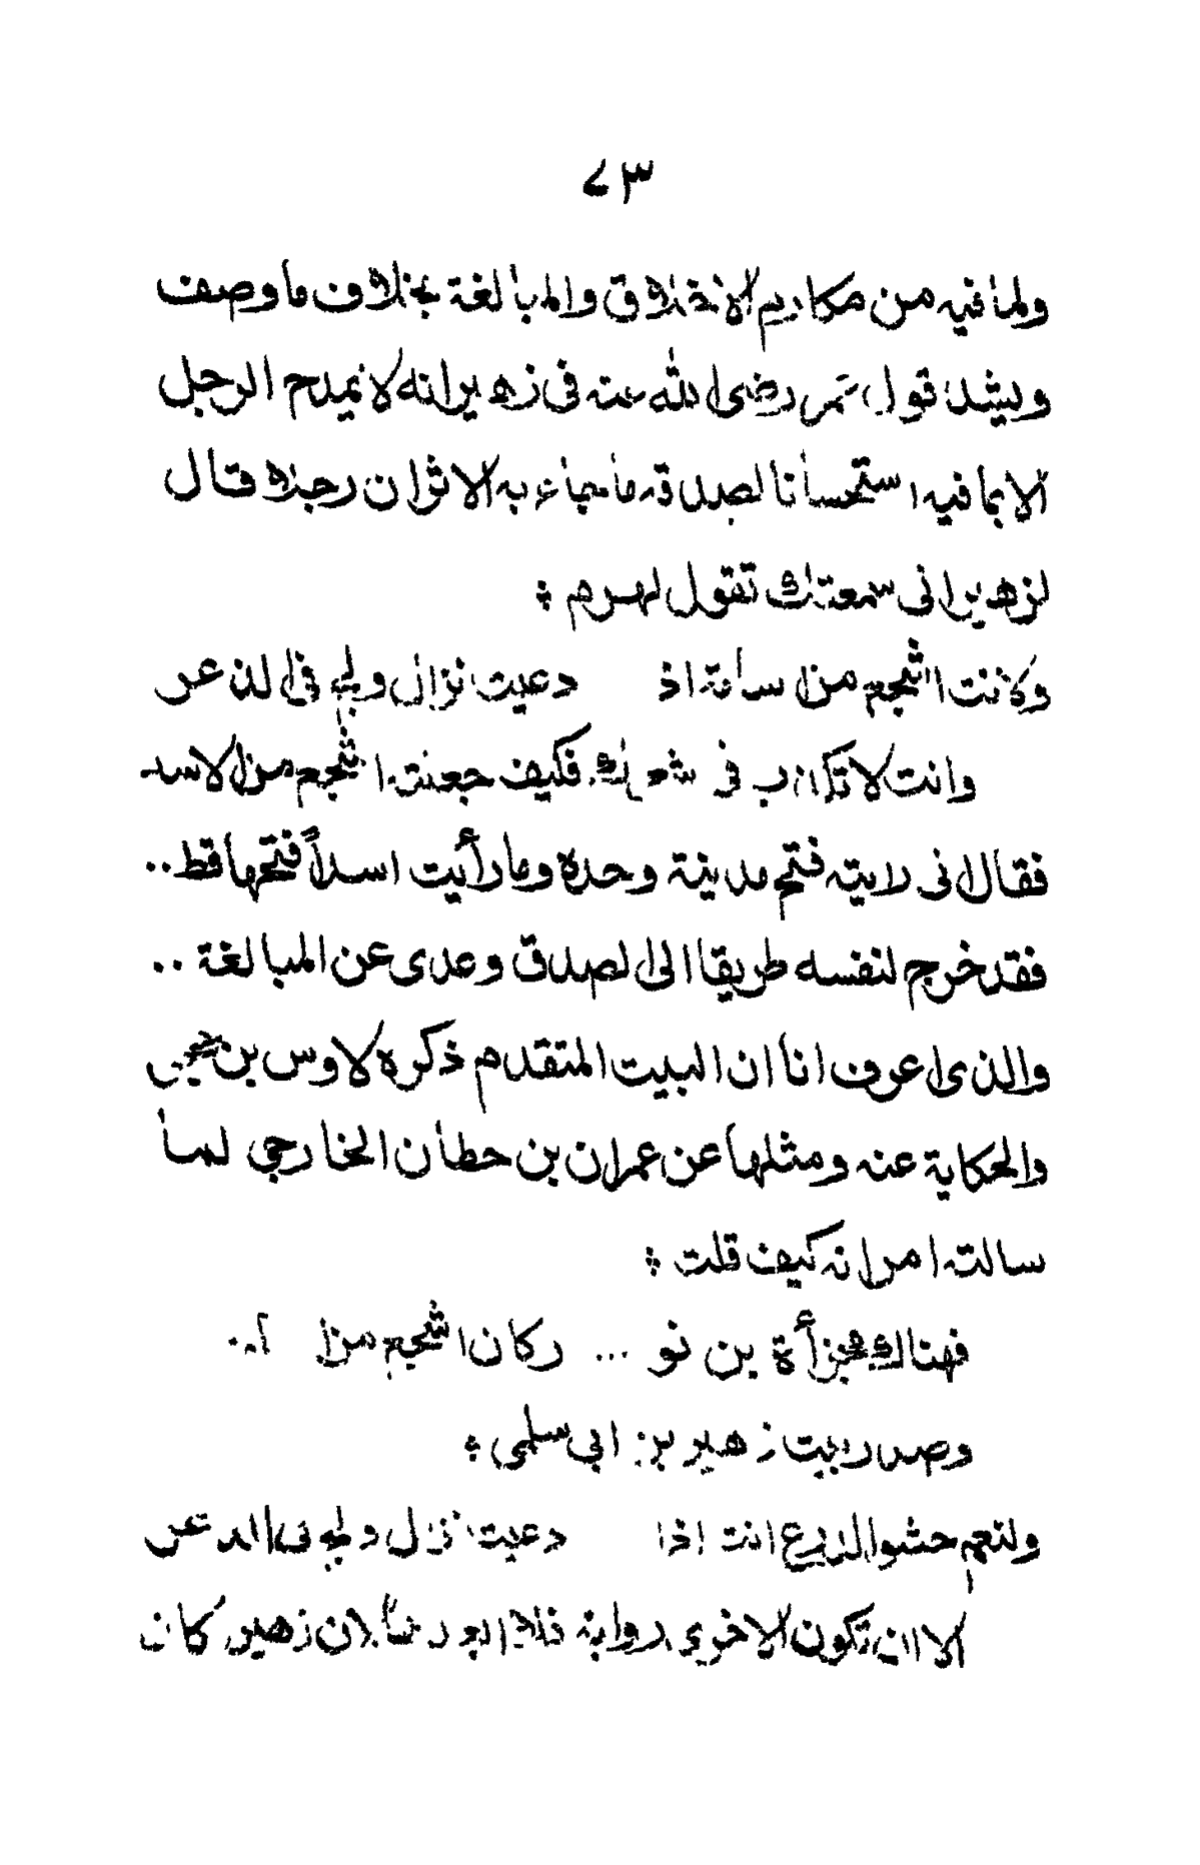 ٧٣
ولما فيه من مكاريم الاخلاق والمبالغة بخلاف ما وصف
ويشد قول عمر رضى الله عنه فى زهير انه لا يمدح الرجل
الا بما فيه استحسانا لصدقه ما جاء به الاثر ان رجلا قال
لزهير انى سمعتك تقول لهرم :
ولانت اشجع من اسامة اذ دعيت نزال ولج فى الذعر
وانت لا تكذب فى شعرك فكيف جعلته اشجع من الاسد
فقال انى رايته فتح مدينة وحده وما رأيت اسداً فتحها قط..
فقد خرج لنفسه طريقا الى الصدق وعدى عن المبالغة ..
والذى اعرف انا ان البيت المتقدم ذكره لاوس بن
والحكاية عنه ومثلها عن عمران بن حطان الخارجي لما
سالته امراته كيف قلت :
فهناك مجزأة بن ثو ... ركان اشجع من
وصدر بيت زهير بن ابي سلمى :
ولنعم حشو الدرع انت اذا دعيت نزال ولج فى الذعر
الا ان تكون الاخرى رواية لان زهير كان